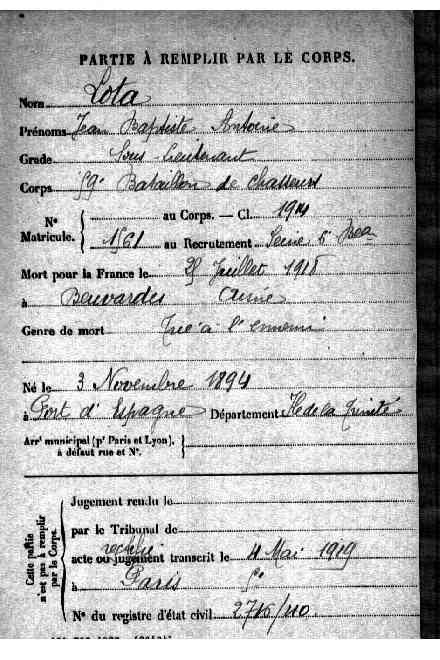 PARTIE À REMPLIR PAR LE CORPS.
Nom Lota
Prénoms Jean Baptiste Antoine
Grade Sous-Lieutenant
Corps 59e Bataillon de chasseurs
N° Matricule. { au Corps. — Cl. 1914
1561 au Recrutement Seine 5e
Mort pour la France le Juillet 1918
à Beuvardes Aisne
Genre de mort Tué à l'ennemi
Né le 3 Novembre 1894
à Port d'Espagne Département Ile de la Trinité
Arr' municipal (p' Paris et Lyon), à défaut rue et N°.
Cette partie n'est pas à remplir par le Corps.
Jugement rendu le
par le Tribunal de
rectifié
acte ou jugement transcrit le 4 Mai 1919
à Paris 5e
N° du registre d'état civil 2716/110